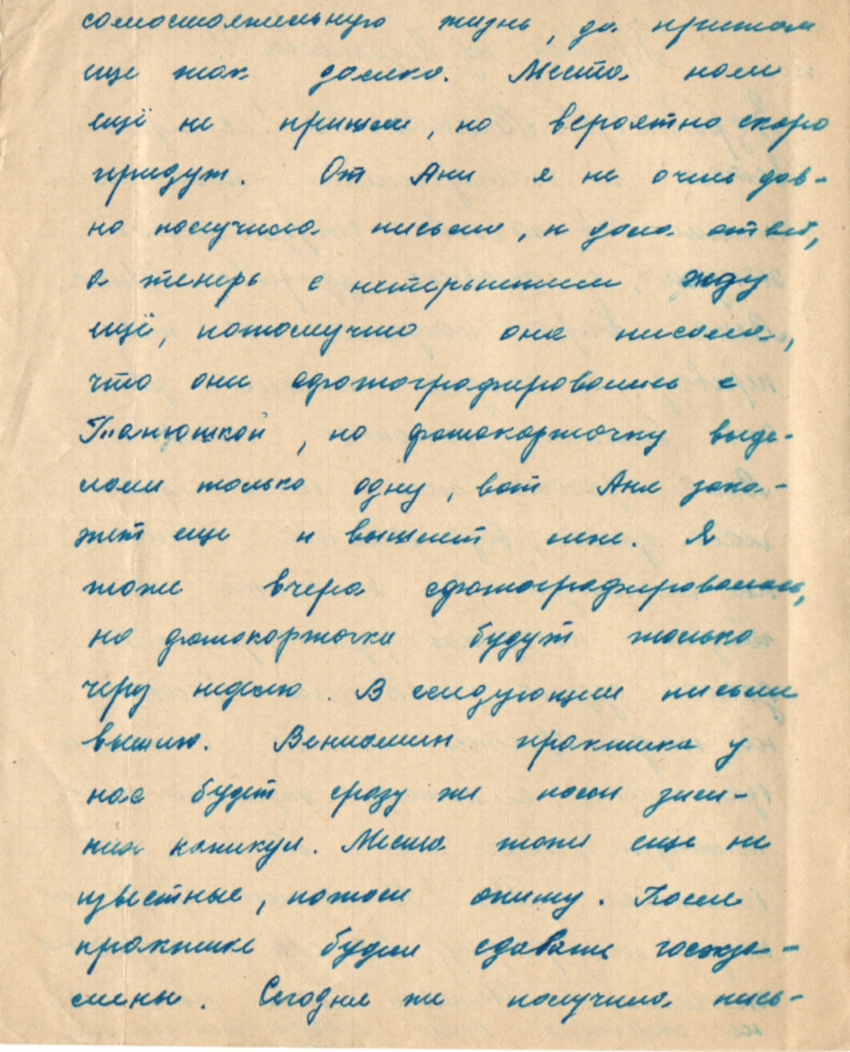 самостоятельную жизнь, да притом
еще так далеко. Места нам
ещё не пришли, но вероятно скоро
придут. От Ани я не очень дав-
но получила письмо, и дала ответ,
а теперь с нетерпением жду
ещё, потомучто она писала,
что они сфотографировались с
Танюшкой, но фотокарточку выде-
лали только одну, вот Аня зака-
жет еще и вышлет мне. Я
тоже вчера сфотографировалась,
но фотокарточки будут только
через неделю. В следующем письме
вышлю. Вениамин практика у
нас будет сразу же после зим-
них каникул. Места тоже еще не
известные, потом опишу. После
практики будем сдавать госэкза-
мены. Сегодня же получила пись-